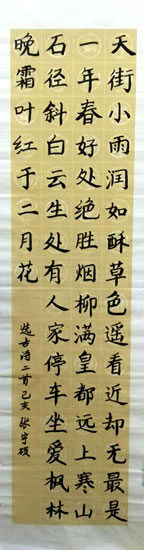 天街小雨润如酥草色遥看近却无最是
一年春好处绝胜烟柳满皇都远上寒山
石径斜白云生处有人家停车坐爱枫林
晚霜叶红于二月花
选古诗二首己亥张宇硕